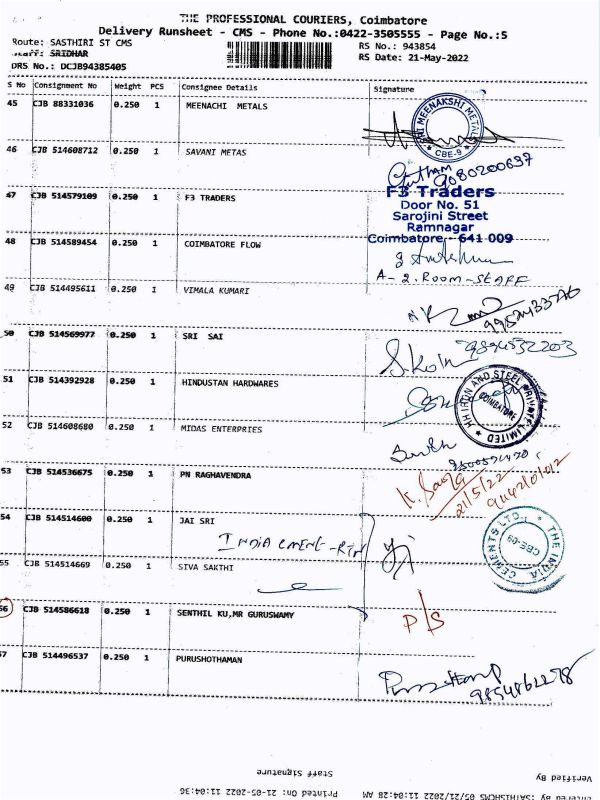 THE PROFESSIONAL COURIERS, Coimbatore
Delivery Runsheet - CMS - Phone No.:0422-3505555 - Page No.:5
Route: SASTHIRI ST CMS
Staff: SRIDHAR
DRS No.: DCJB94385405
RS No.: 943854
RS Date: 21-May-2022
S No Consignment No Weight PCS Consignee Details Signature
45 CJB 88331036 0.250 1 MEENACHI METALS
SRI MEENAKSHI METALS
* CBE-9 *
46 CJB 514608712 0.250 1 SAVANI METAS
9080200697
47 CJB 514579109 0.250 1 F3 TRADERS
F3 Traders
Door No. 51
Sarojini Street
Ramnagar
Coimbatore - 641 009
48 CJB 514589454 0.250 1 COIMBATORE FLOW
A-2. ROOM-STAFF
49 CJB 514495611 0.250 1 VIMALA KUMARI
50 CJB 514569977 0.250 1 SRI SAI
9894532203
51 CJB 514392928 0.250 1 HINDUSTAN HARDWARES
IRON AND STEEL PRIVATE LIMITED
COIMBATORE
52 CJB 514608680 0.250 1 MIDAS ENTERPRIES
53 CJB 514536675 0.250 1 PN RAGHAVENDRA
21/5/22
54 CJB 514514600 0.250 1 JAI SRI
INDIA CMENT-RTN
THE INDIA CEMENTS LTD.,
CBE-09
55 CJB 514514669 0.250 1 SIVA SAKTHI
56 CJB 514586618 0.250 1 SENTHIL KU,MR GURUSWAMY
P/S
57 CJB 514496537 0.250 1 PURUSHOTHAMAN
Staff Signature
Verified By
Printed On: 21-05-2022 11:04:36
Entered By: SATHISHCMS 05/21/2022 11:04:28 AM